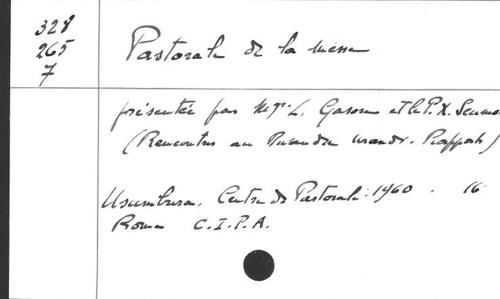 328
265
7
Pastorale de la messe
présentée par Mgr. L. Gasore et le P. X. Seumois
(Rencontres au Ruanda Urandi. Rapports)
Usumbura. Centre de Pastorale. 1960. 16
Rome C.I.P.A.